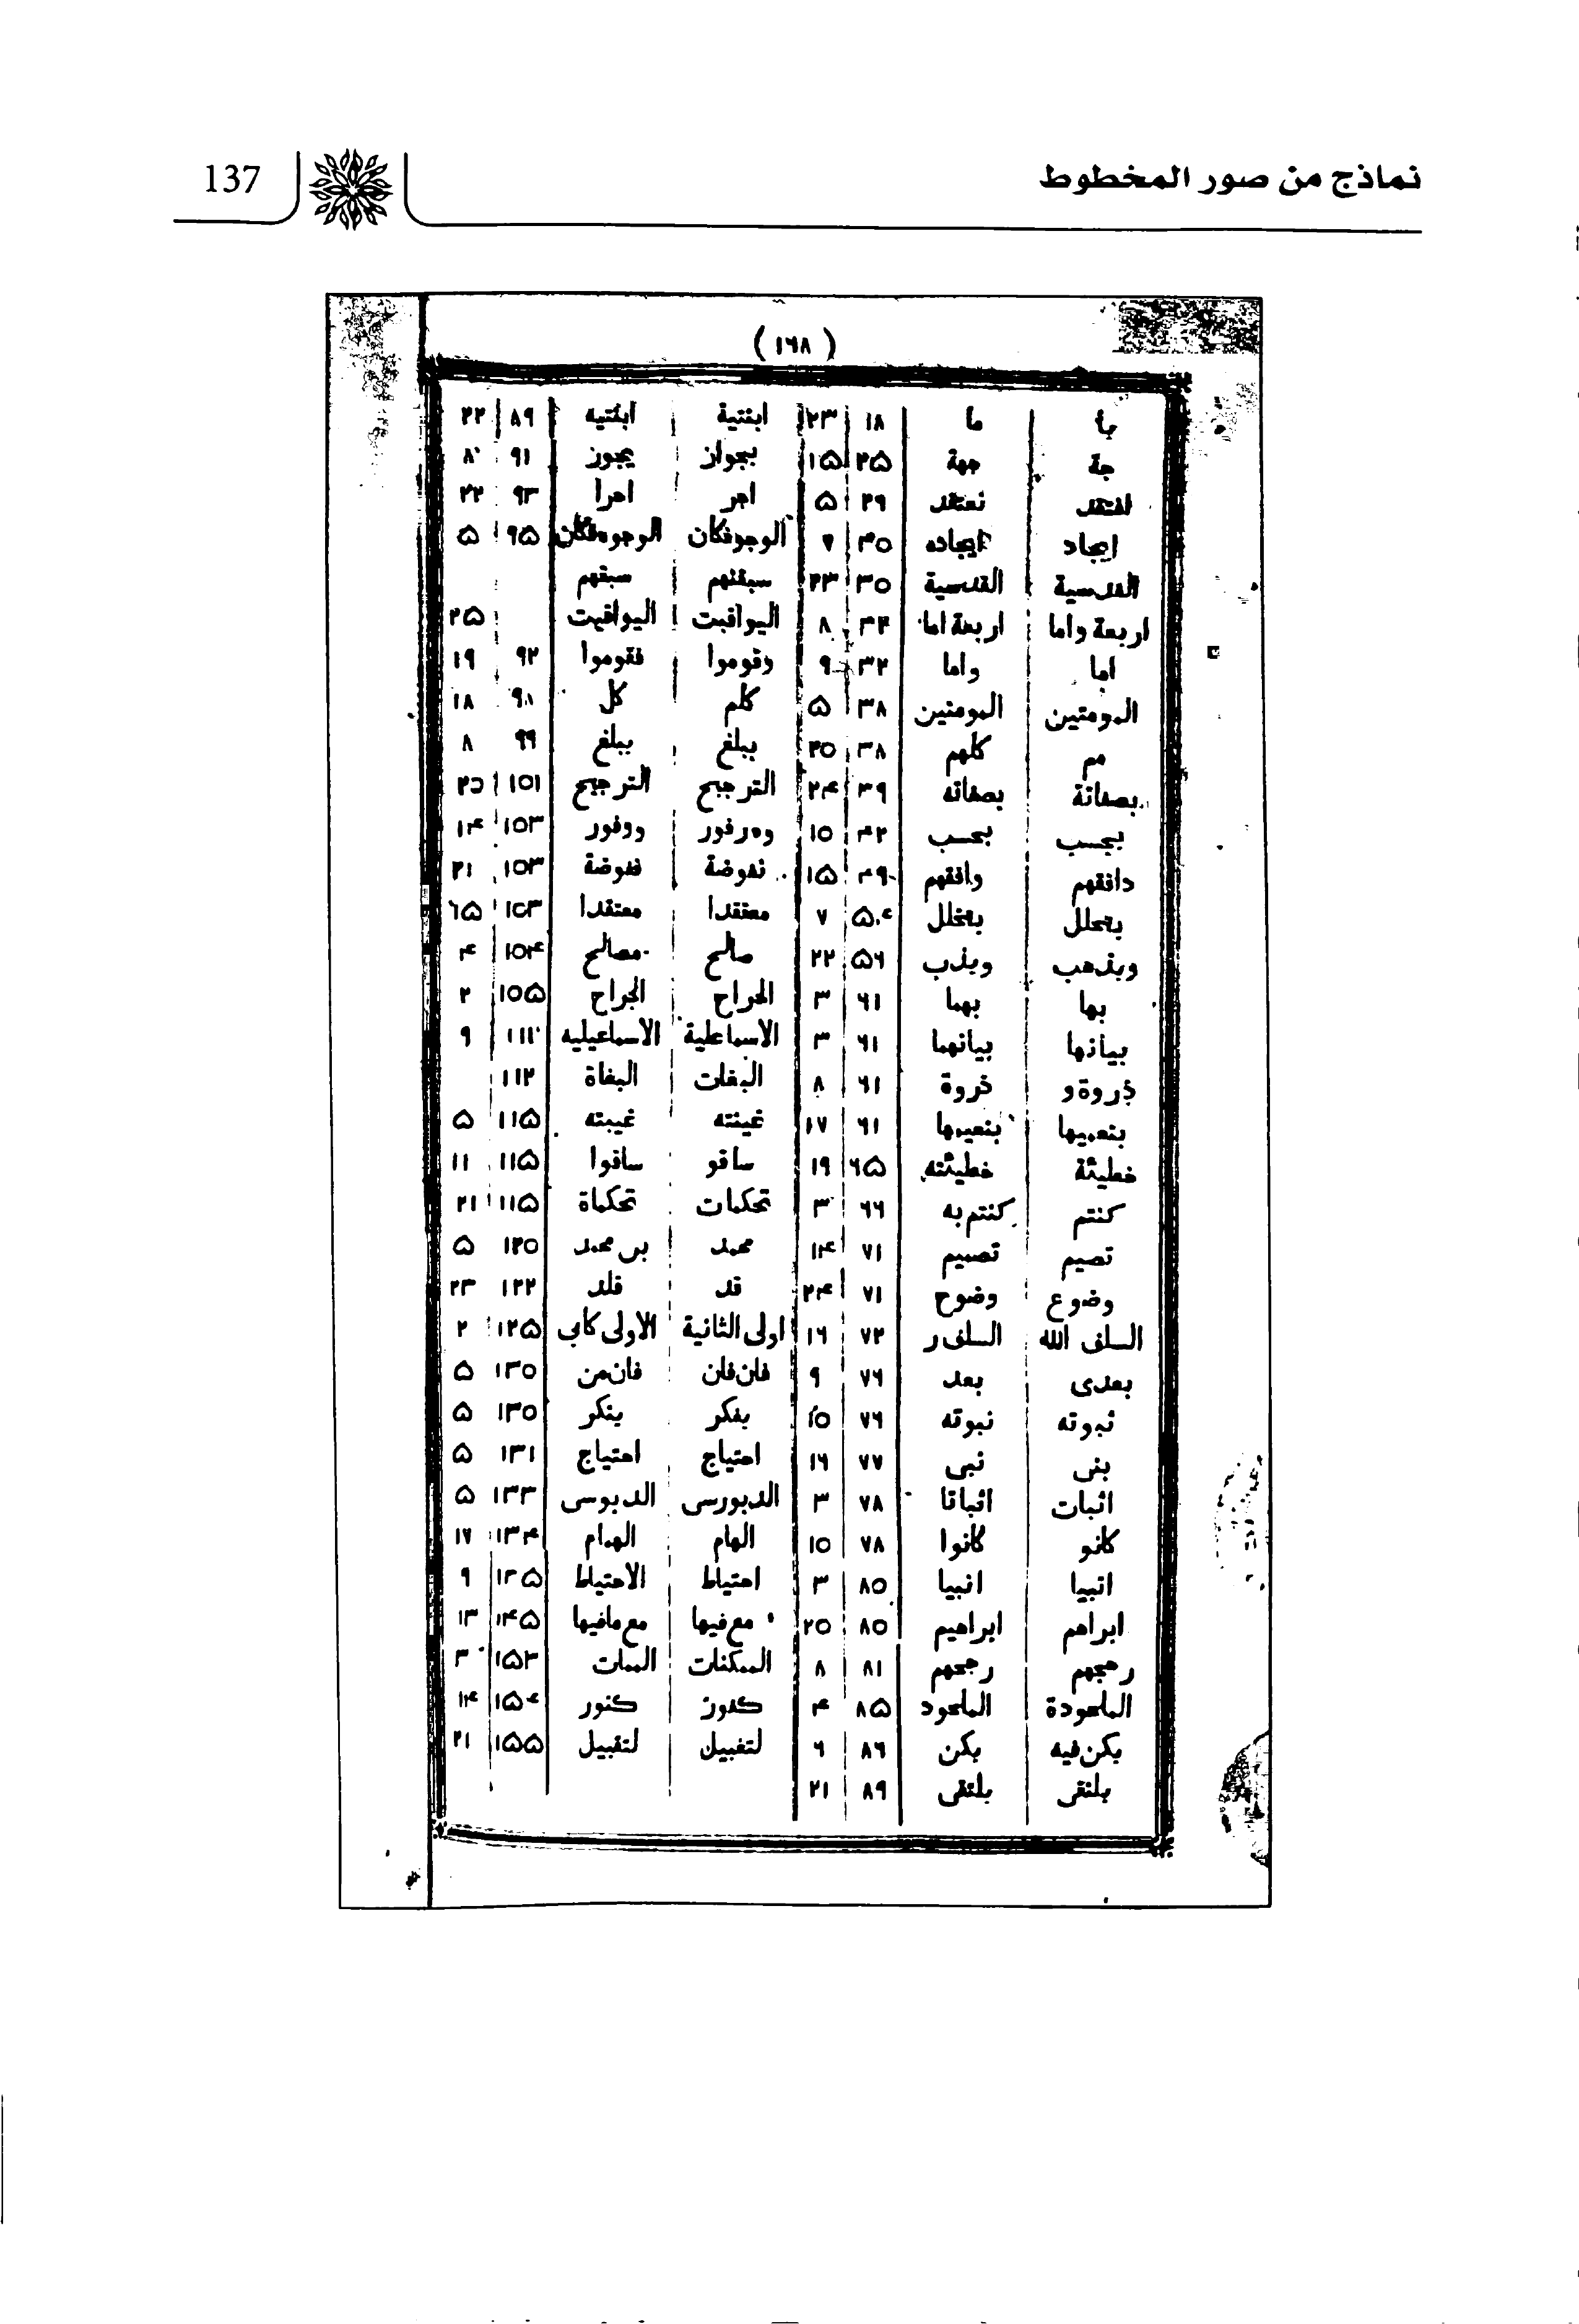 نماذج من صور المخطوط 137
(١٦٨)
ما ١٨ ٢٣ ابنتية ابنتيه ٨٩ ٢٢
جة جهة ٢۵ ١۵ بجواز يجوز ٩١ ٨
نعتقد ٢٩ ۵ اجر اجرا ٩٣ ٢٢
ايجاد ايجاده ٣٥ ٧ الوجوفكان الوجودفكان ٩۵ ۵
القدسية ٣٥ ٢٣ سبقنهم سبقهم
اربعة واما اربعة اما ٣٤ ٨ اليواقبت اليواقيت ٢۵
اما واما ٣٢ ٩ وقوموا فقوموا ٩٢ ١٩
المومتين المومنين ٣٨ ۵ كلم كل ٩٨ ١٨
مم كلهم ٣٨ ٢٥ يبلغ ٩٩ ٨
بصفاتة بصفاته ٣٩ ٢۴ الترجيح ١٥١
بجسب بحسب ۴٢ ١٥ ووفور ١٥٣ ١۴
دافقهم وافقهم ۴٩ ١۵ نفوضة ١٥٣ ٢١
يتحلل يتخلل ۵۴ ٧ معتقدا ١٥٣
ويذهب ويذب ۵٦ ٢٢ صالح مصالح ١٥۴ ۴
بها بهما ٦١ ٣ الجراح ١٥۵ ٢
بيانها بيانهما ٦١ ٣ الاسماعلية الاسماعيليه ١١١ ٩
ذروة و ذروة ٦١ ٨ البغات البغاة ١١٢
٦١ ١٧ غينته غيبته ١١۵ ۵
خطيئة خطيئته ٦۵ ١٩ ساقو ساقوا ١١۵ ١١
كنتم كنتم به ٦٦ ٣ تحكمات تحكماة ١١۵ ٢١
تصيم تصميم ٧١ ١۴ محمد بن محمد ١٢٥ ۵
وضوع وضوح ٧١ ٢۴ قد قلد ١٢٢ ٢٣
السلف الله السلف ر ٧٢ ١٦ اولى الثانية الاولى كابي ١٢۵ ٢
بعدى بعد ٧٦ ٩ فان فان فان من ١٣٥ ۵
ثبوته نبوته ٧٦ ١٥ يفكر ينكر ١٣٥ ۵
بنى نبى ٧٧ ١٦ احتياج احتياج ١٣١ ۵
اثبات اثباتا ٧٨ ٣ الدبورسى الدبوسى ١٣٣ ۵
كانو كانوا ٧٨ ١٥ الهام الهمام ١٣۴ ١٧
انبيا انبيا ٨٥ ٣ احتياط الاحتياط ١٣۵ ٩
ابراهم ابراهيم ٨٥ ٢٥ مع فيها مع مافيها ١۴۵ ١٣
رجحهم ٨١ ٨ ١۵٣ ٣
الملحودة الملحود ٨۵ ۴ كنوز كنور ١۵۴ ١۴
يكن فيه يكن ٨٦ ٦ لتفبيل لتقبيل ١۵۵ ٢١
يلنقى يلتقى ٨٩ ٢١